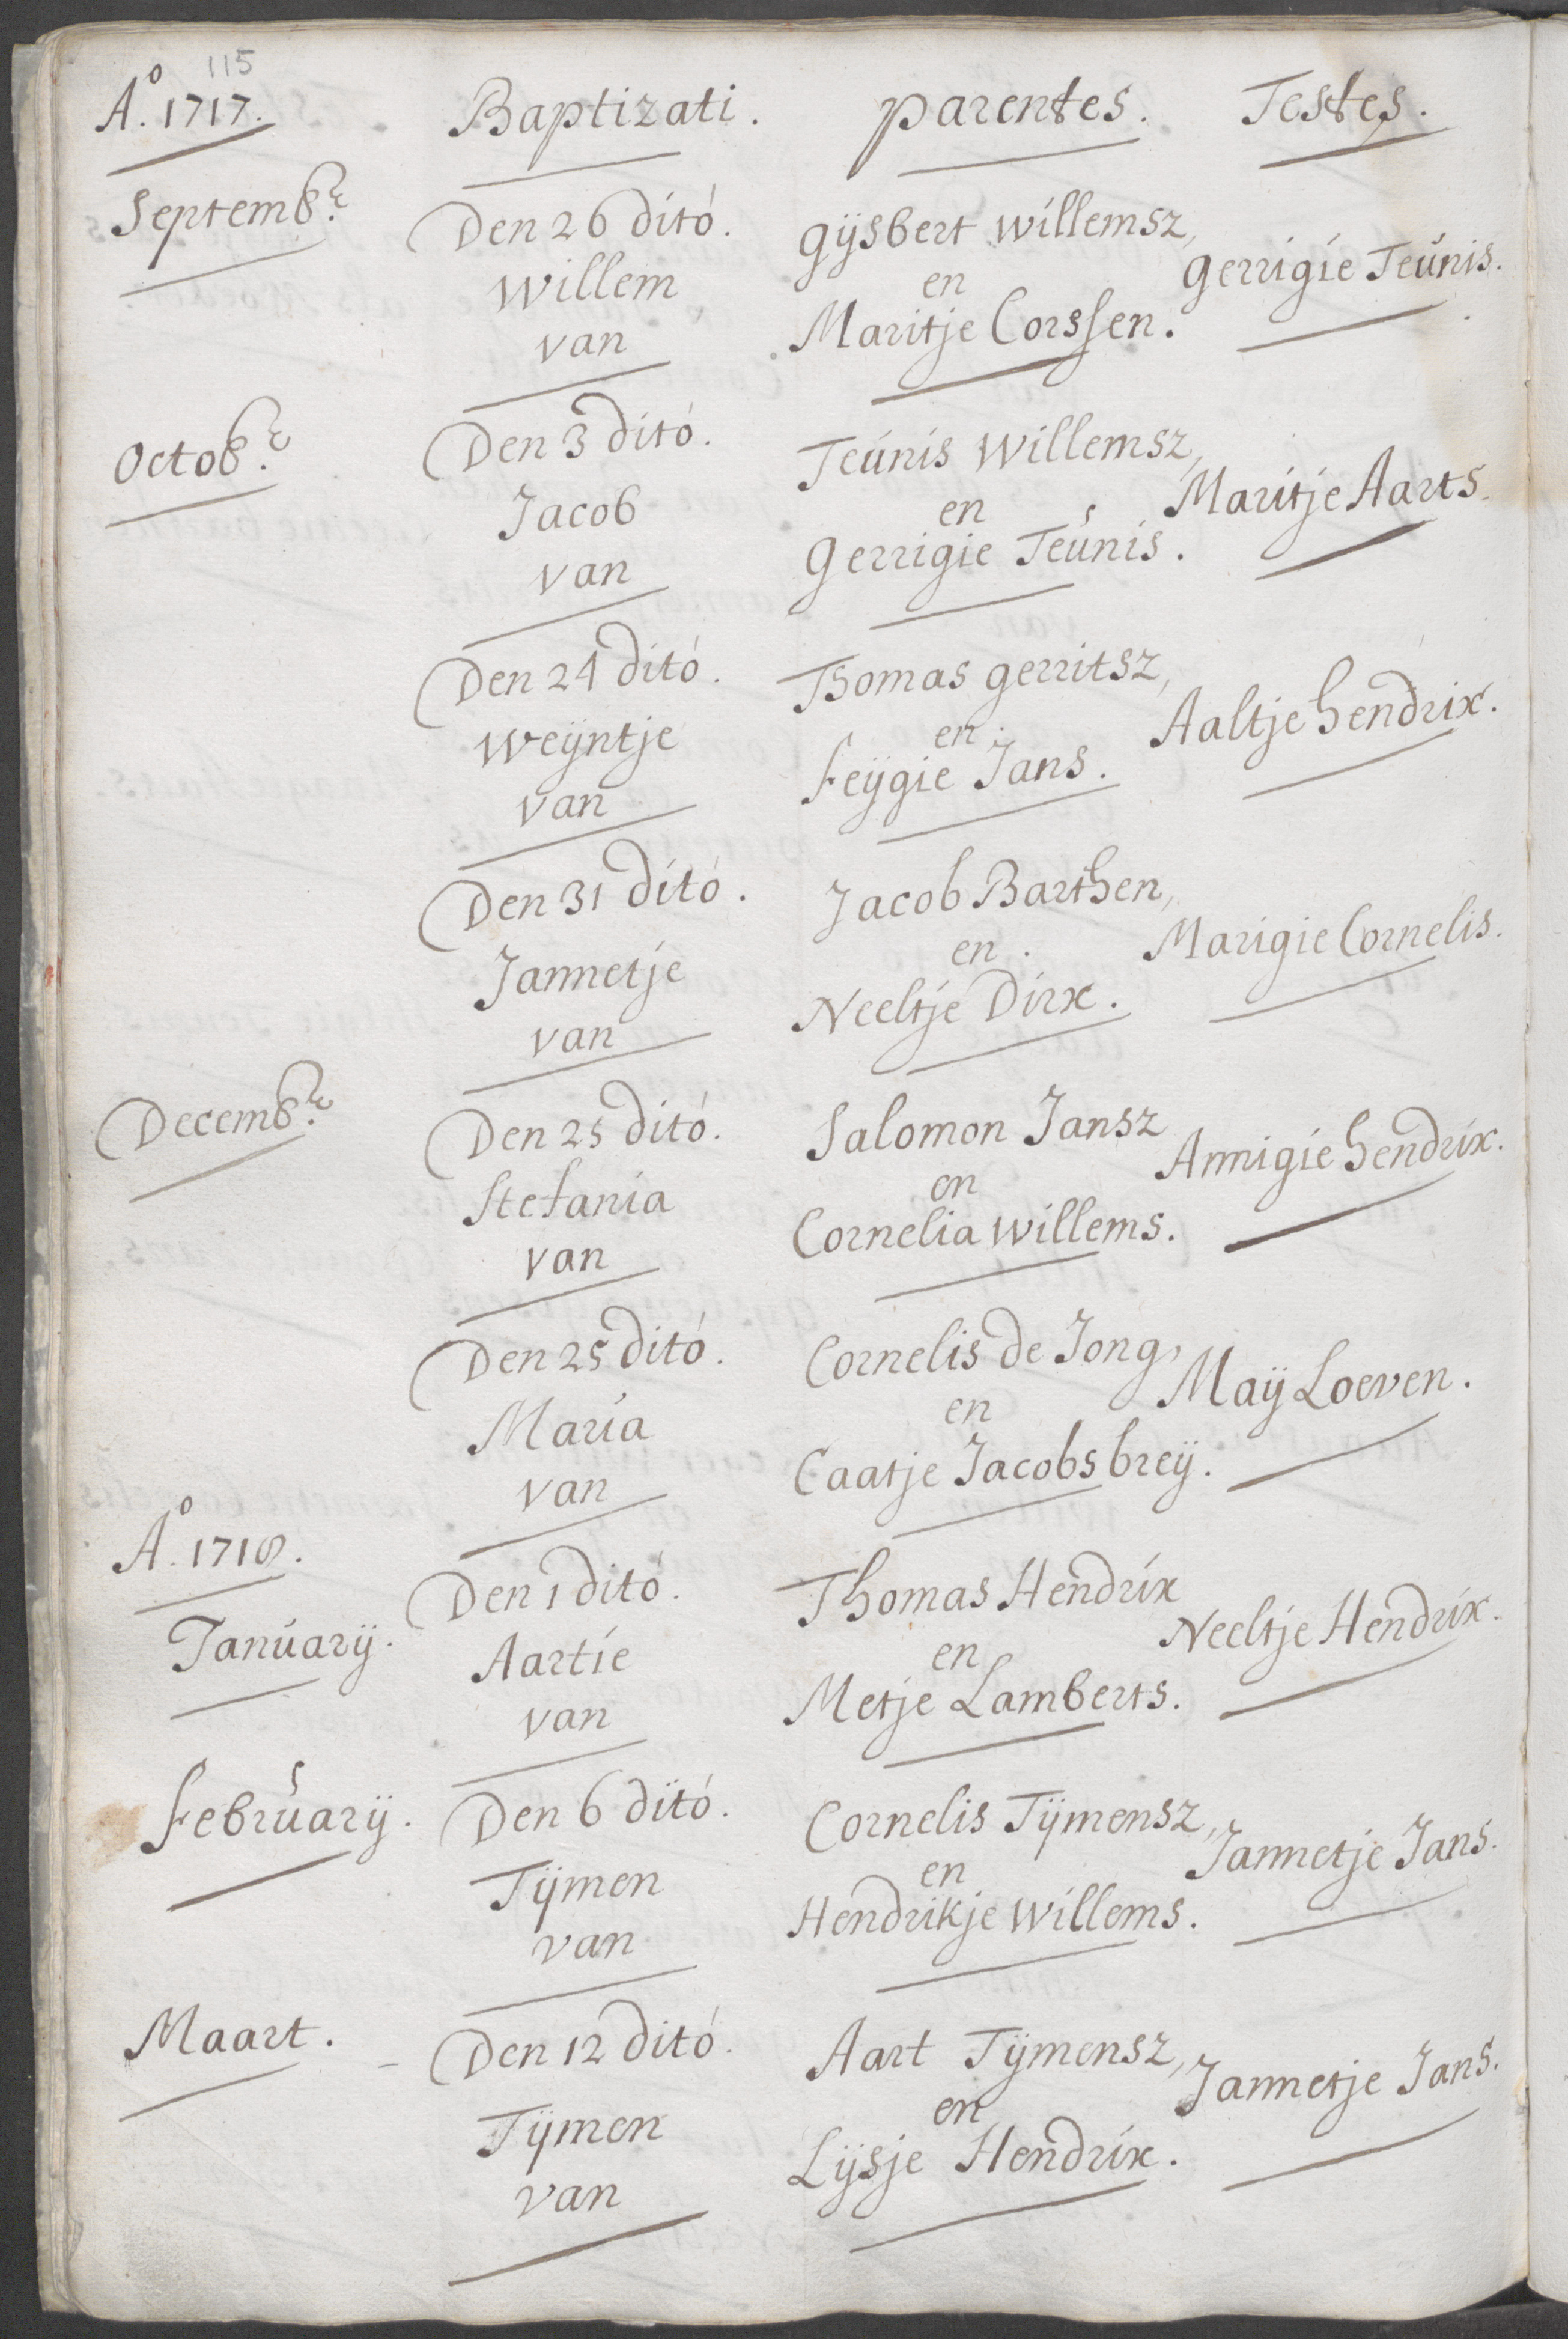 115
Ao. 1717. Baptizati. parentes. Testes.
Septembr. Den 26 dito. Gijsbert Willemsz,
Willem en Gerrigie Teunis.
van Maritje Corssen.
Octobr. Den 3 dito. Teunis Willemsz,
Jacob en Maritje Aarts.
van Gerrigie Teunis.
Den 24 dito. Thomas Gerritsz,
Weijntje en Aaltje Hendrix.
van Feijgie Jans.
Den 31 dito. Jacob Barthen,
Jannetje en Marigie Cornelis.
van Neeltje Dirx.
Decembr. Den 25 dito. Salomon Jansz
Stefania en Annigie Hendrix.
van Cornelia Willems.
Den 25 dito. Cornelis de Jong,
Maria en Maij Loeven.
van Caatje Jacobs breij.
Ao. 1718.
Den 1 dito. Thomas Hendrix
Januarij. Aartie en Neeltje Hendrix.
van Metje Lamberts.
Februarij. Den 6 dito. Cornelis Tijmensz,
Tijmen en Jannetje Jans.
van Hendrikje Willems.
Maart. Den 12 dito. Aart Tijmensz,
Tijmen en Jannetje Jans.
van Lijsje Hendrix.